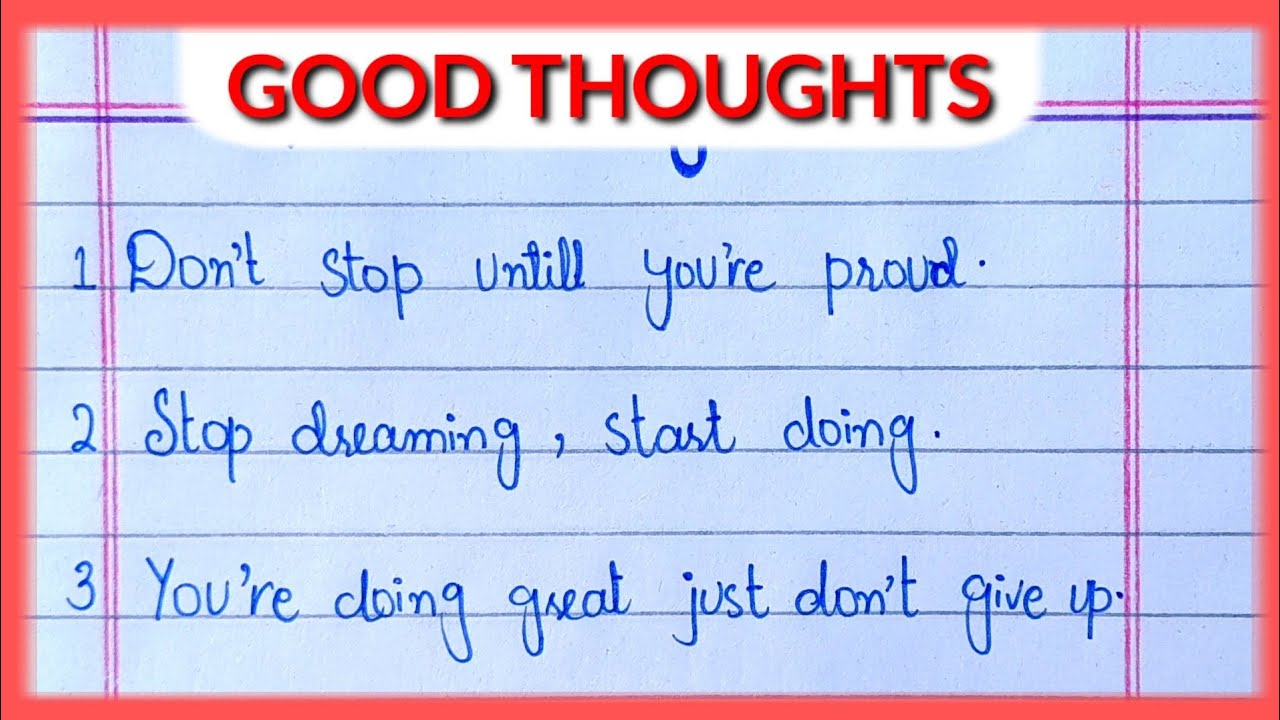 GOOD THOUGHTS
1 Don't stop untill you're proud.
2 Stop dreaming, start doing.
3 You're doing great just don't give up.